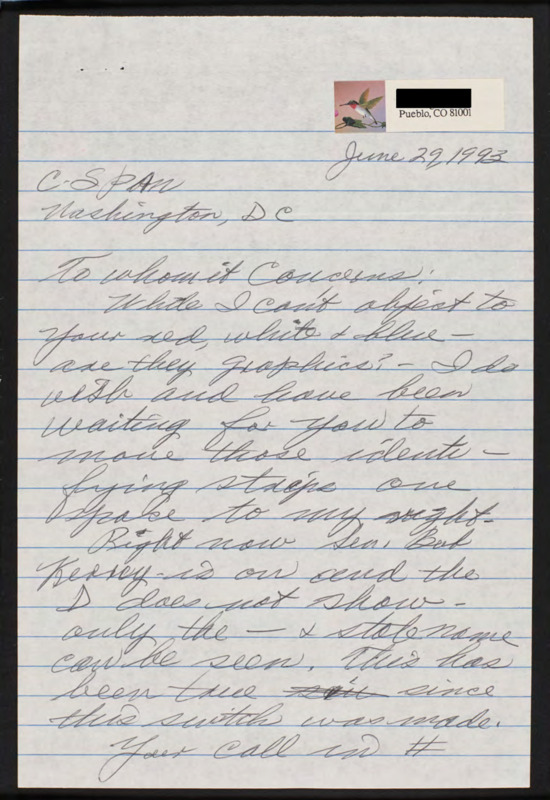 Pueblo, CO 81001
June 29, 1993
C-SPAN
Washington, DC
To whom it Concerns:
While I can't object to
your red, white & blue –
are they graphics? – I do
wish and have been
waiting for you to
move those identi –
fying strips one
space to my right.
Right now Sen. Bob
Kerrey – is on and the
D does not show –
only the — & state name
can be seen. This has
been true since
this switch was made.
Your call in #